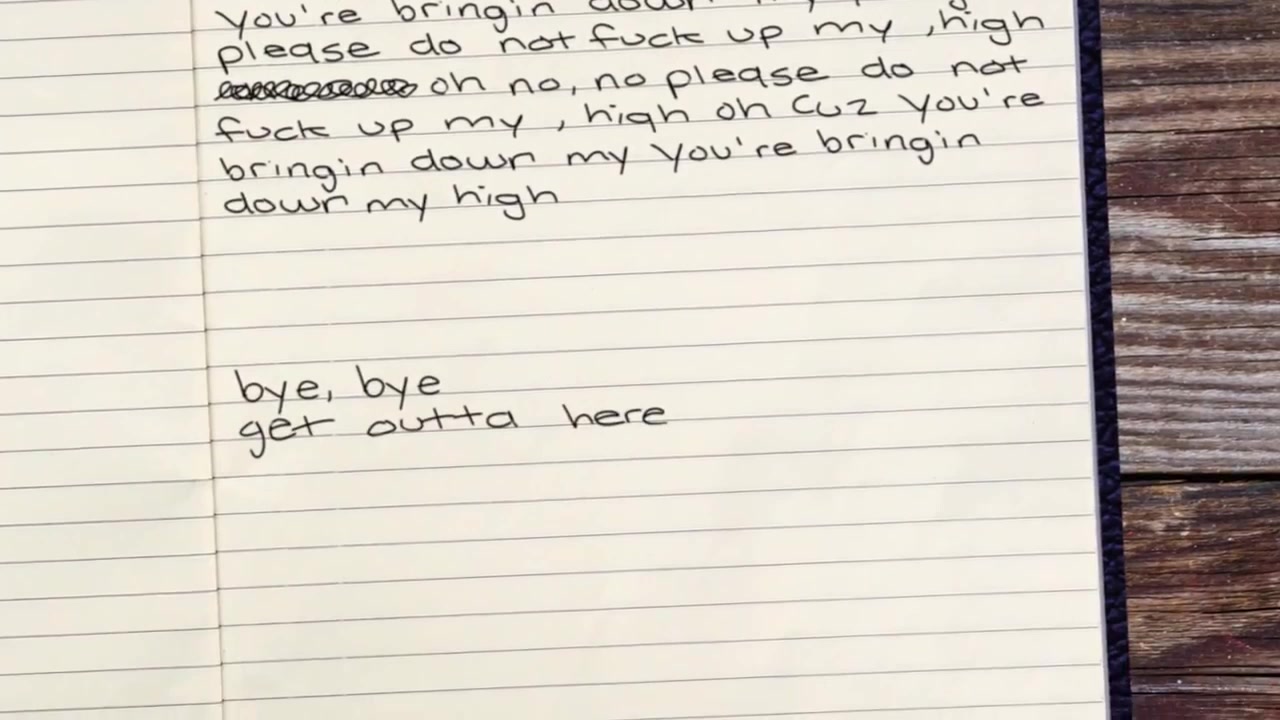 You're bringin down my
please do not fuck up my , high
oh no, no please do not
fuck up my , high oh cuz you're
bringin down my you're bringin
down my high
bye, bye
get outta here